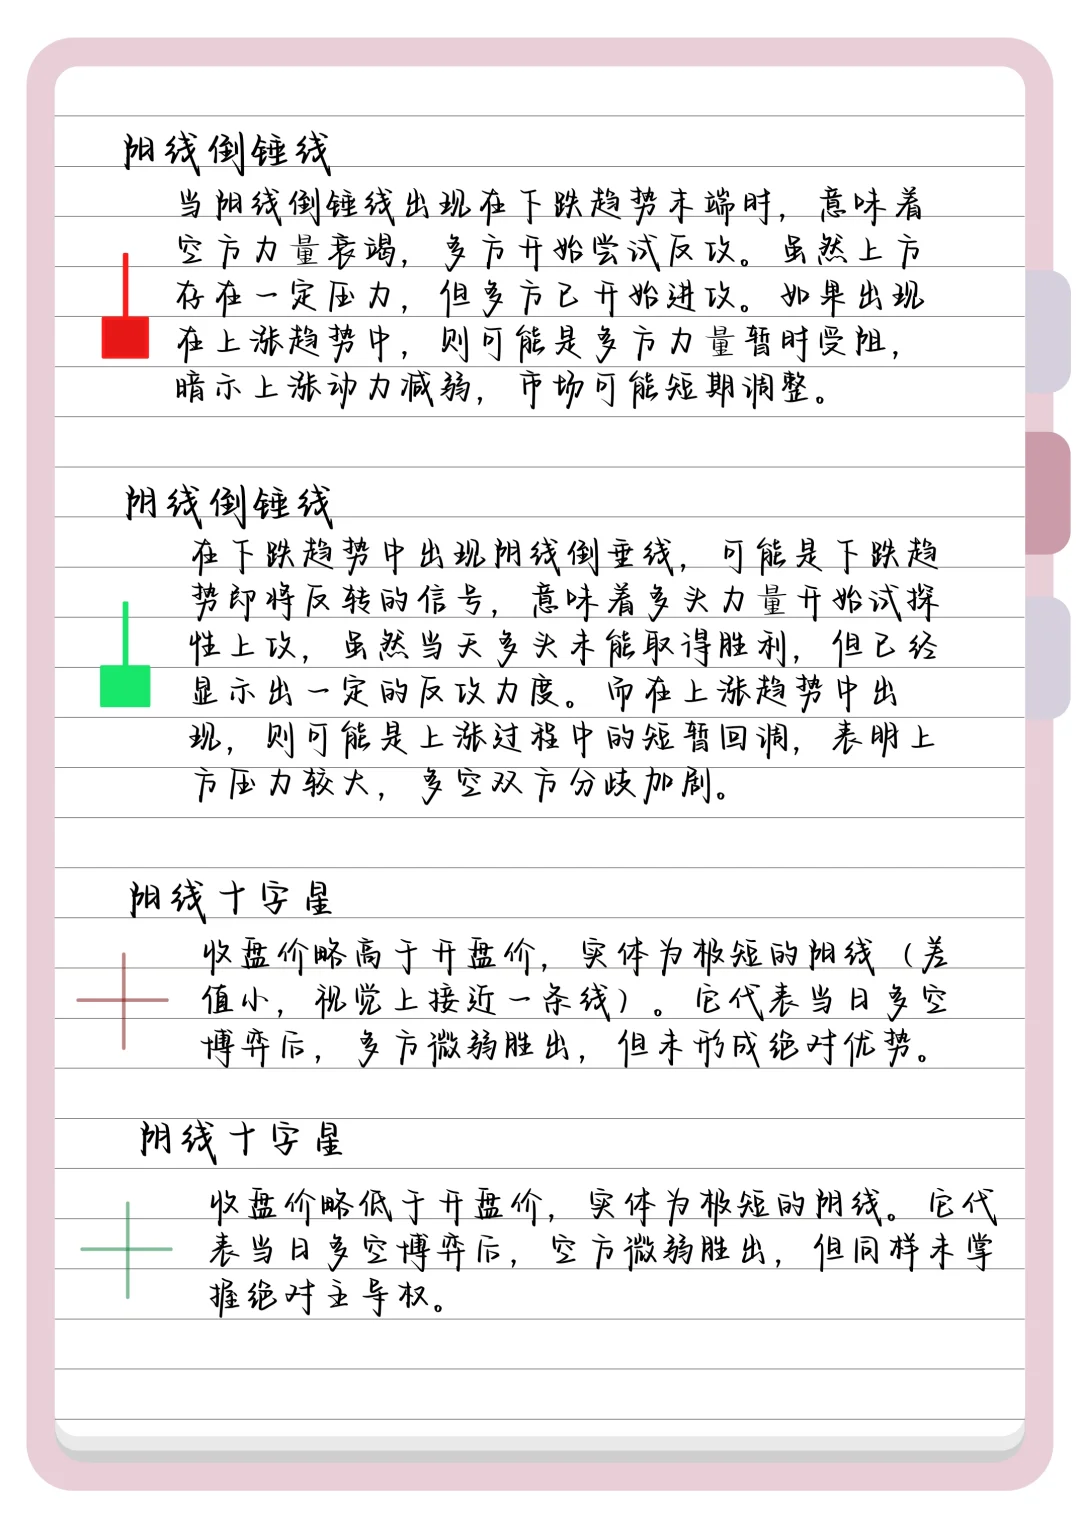 阳线倒锤线
当阳线倒锤线出现在下跌趋势末端时，意味着
空方力量衰竭，多方开始尝试反攻。虽然上方
存在一定压力，但多方已开始进攻。如果出现
在上涨趋势中，则可能是多方力量暂时受阻，
暗示上涨动力减弱，市场可能短期调整。
阴线倒锤线
在下跌趋势中出现阴线倒垂线，可能是下跌趋
势即将反转的信号，意味着多头力量开始试探
性上攻，虽然当天多头未能取得胜利，但已经
显示出一定的反攻力度。而在上涨趋势中出
现，则可能是上涨过程中的短暂回调，表明上
方压力较大，多空双方分歧加剧。
阳线十字星
收盘价略高于开盘价，实体为极短的阳线（差
值小，视觉上接近一条线）。它代表当日多空
博弈后，多方微弱胜出，但未形成绝对优势。
阴线十字星
收盘价略低于开盘价，实体为极短的阴线。它代
表当日多空博弈后，空方微弱胜出，但同样未掌
握绝对主导权。